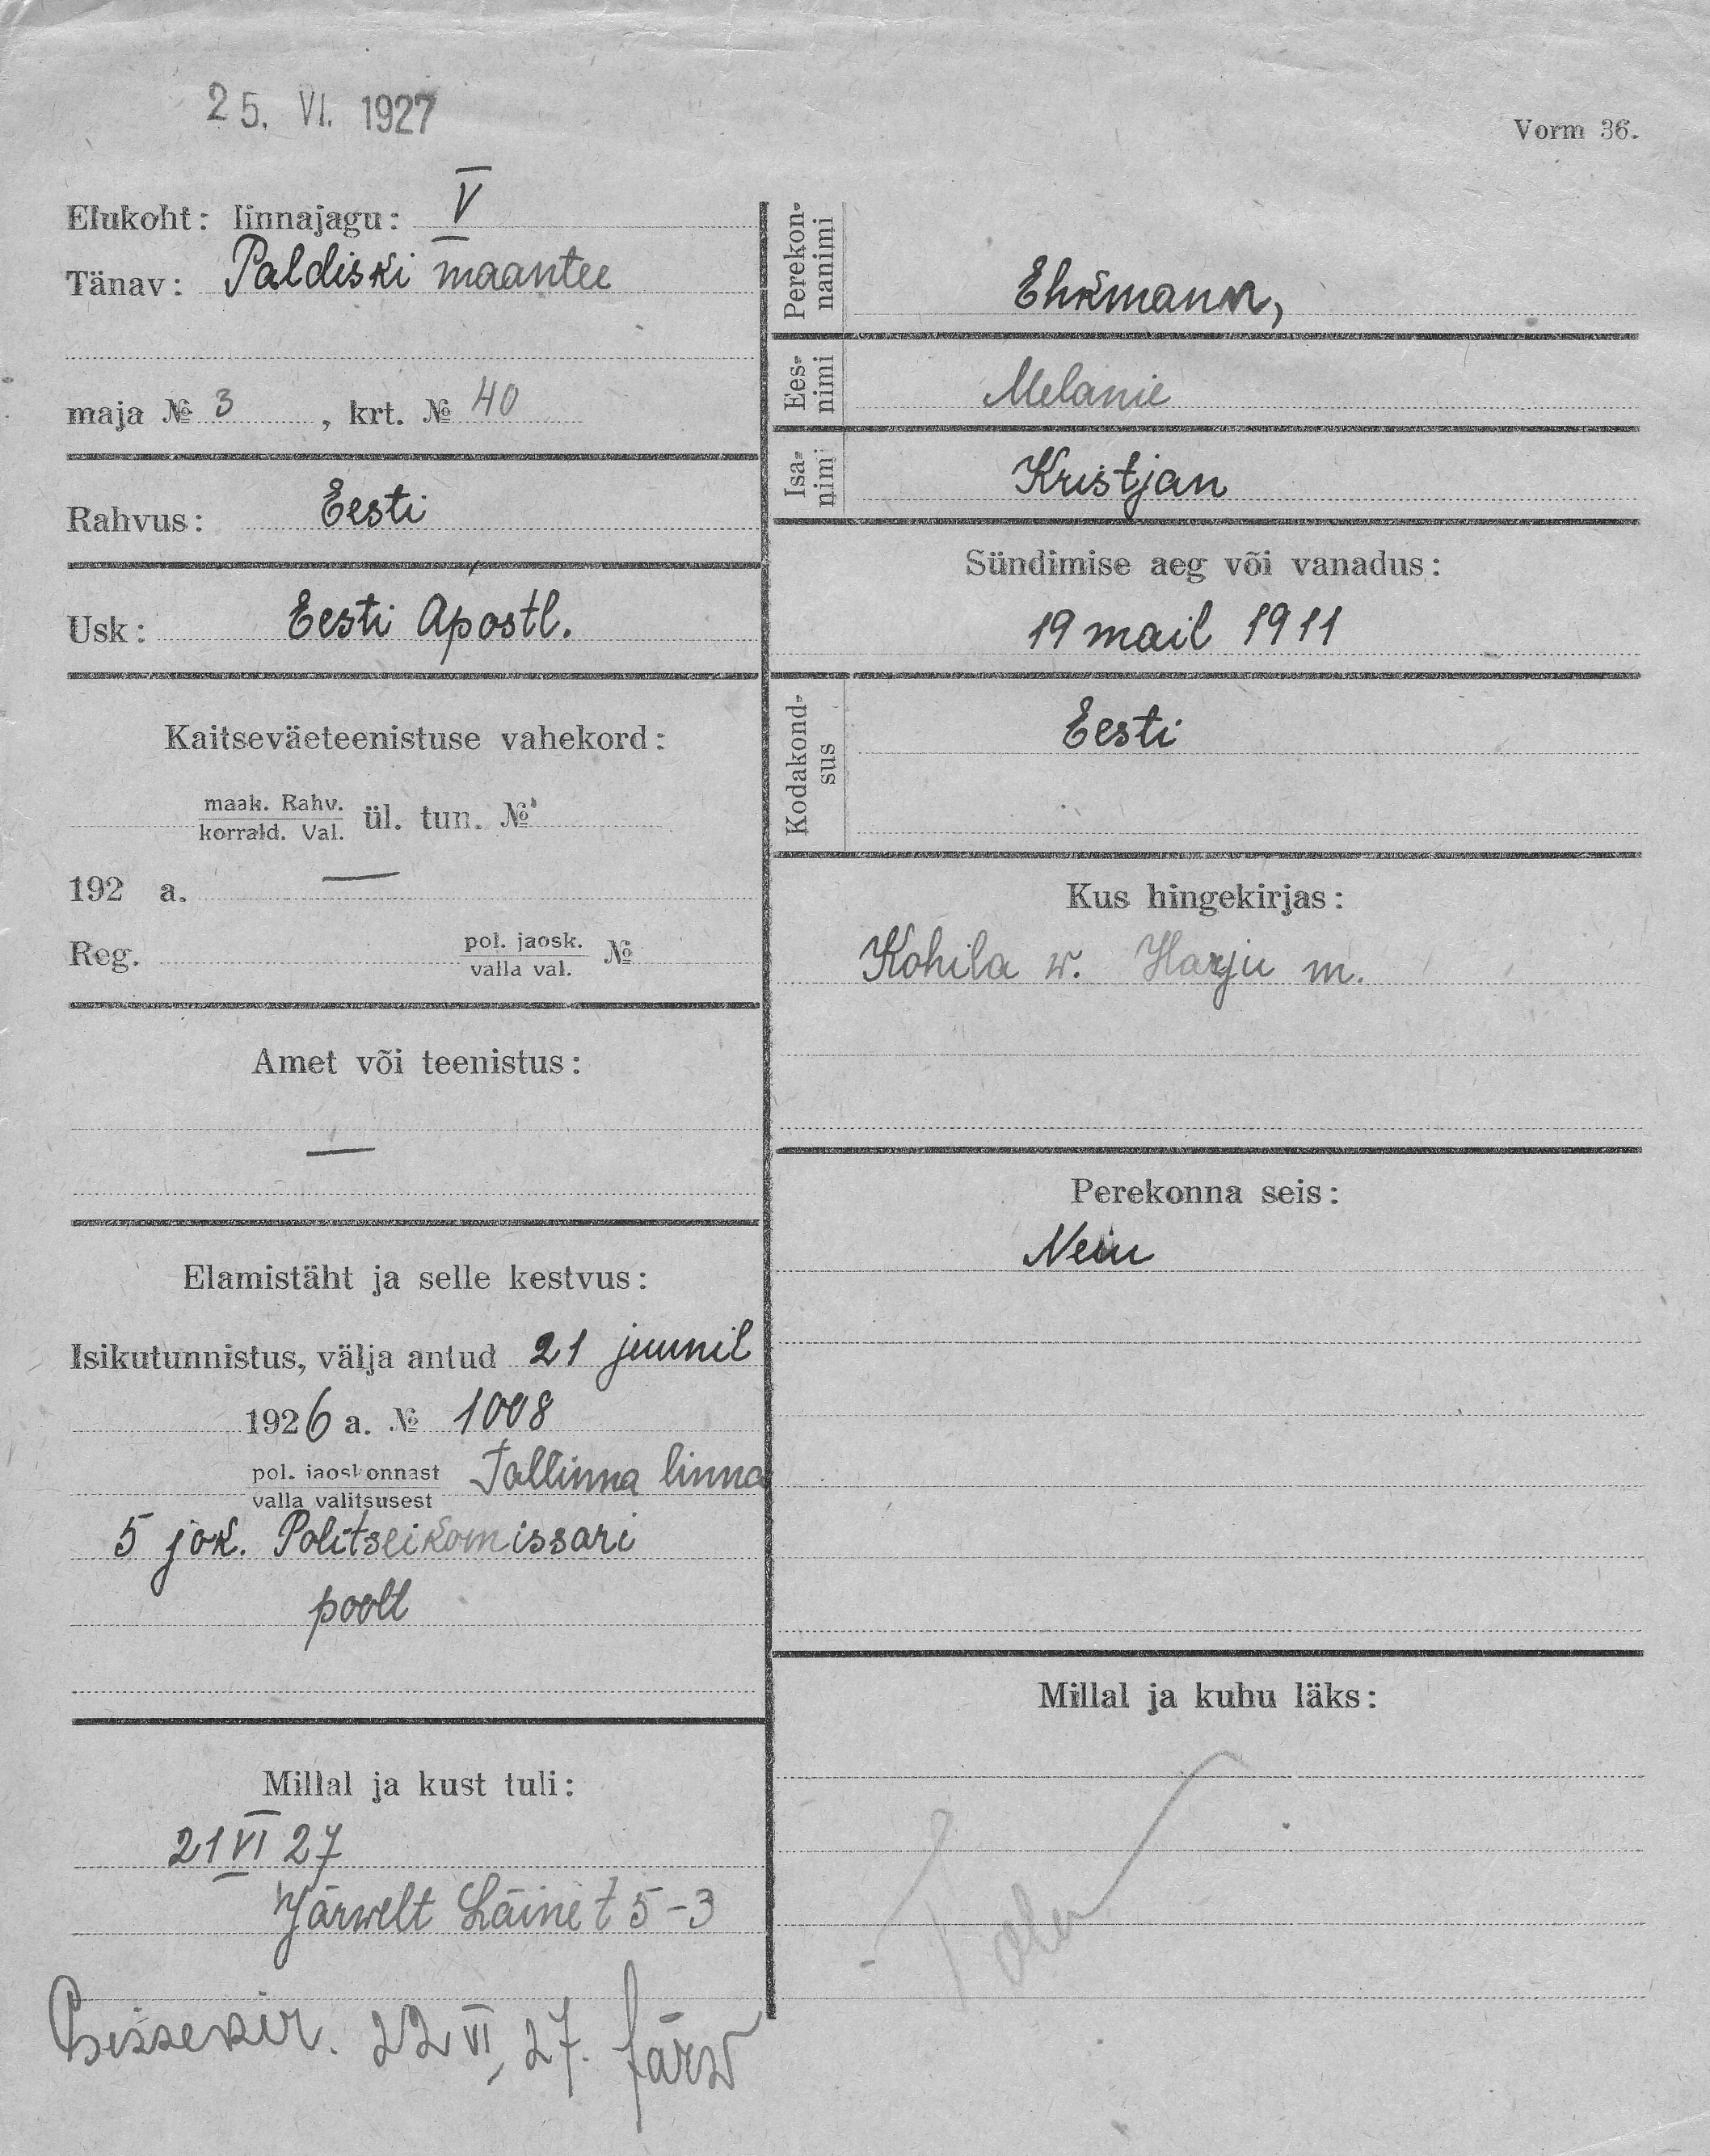 25. VI. 1927
Vorm 36.
Elukoht: linnajagu: V
Tänav: Paldiski maantee
maja № 3, krt. № 40
Rahvus: Eesti
Usk: Eesti Apostl.
Kaitseväeteenistuse vahekord:
maak. Rahv.
korrald. Val. ül. tun. №
192 a. —
Reg. pol. jaosk. №
valla val.
Amet või teenistus:
—
Elamistäht ja selle kestvus:
Isikutunnistus, välja antud 21 juunil
1926 a. № 1008
pol. jaoskonnast Tallinna linna
valla valitsusest
5 jok. Politseikomissari
poolt
Millal ja kust tuli:
21 VI 27
Järwelt Läine t 5-3
Sissekir. 22 VI, 27. Järw
Perekon-
nanimi Ehrmann,
Ees-
nimi Melanie
Isa-
nimi Kristjan
Sündimise aeg või vanadus:
19 mail 1911
Kodakond-
sus Eesti
Kus hingekirjas:
Kohila w. Harju m.
Perekonna seis:
Neiu
Millal ja kuhu läks: